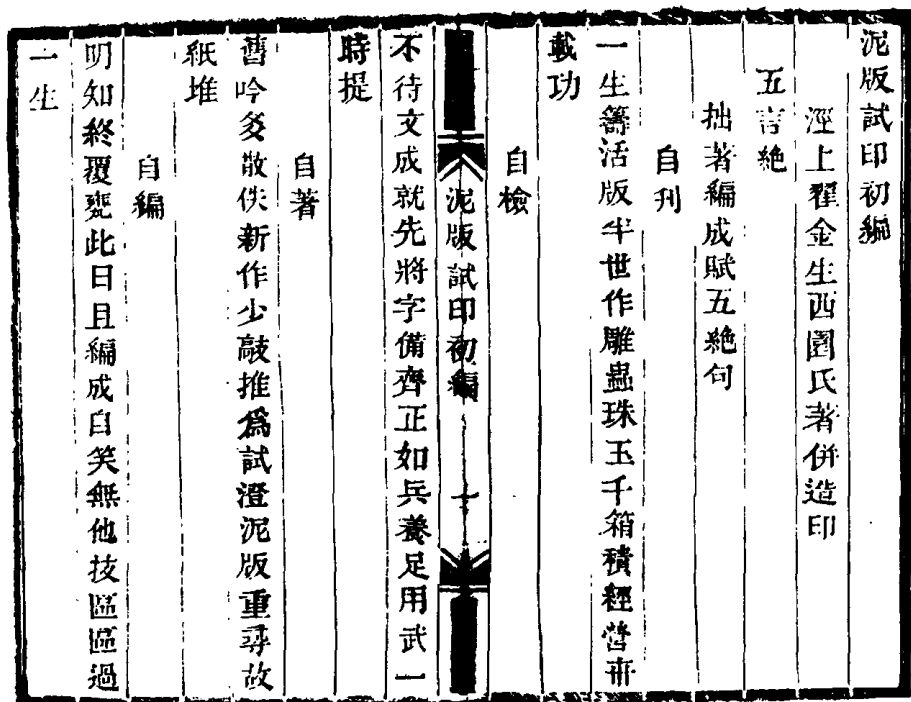 泥版試印初編
涇上翟金生西園氏著併造印
五言絶
拙著編成賦五絶句
自刊
一生籌活版半世作雕蟲珠玉千箱積經營卅
載功
自檢
泥版試印初編
不待文成就先將字備齊正如兵養足用武一
時提
自著
舊吟多散佚新作少敲推爲試澄泥版重尋故
紙堆
自編
明知終覆甕此日且編成自笑無他技區區過
一生